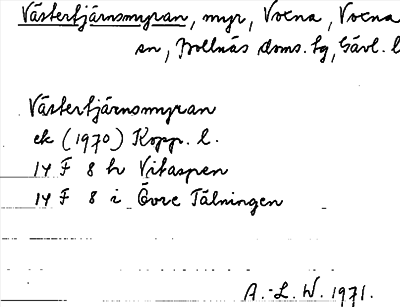 Västertjärnsmyran, myr, Voxna, Voxna
sn, Bollnäs doms. hg, Gävl. l
Västertjärnsmyran
ek (1970) Kopp. l.
14 F 8 h Vitaspen
14 F 8 i Övre Tälningen
A.-L. W. 1971.